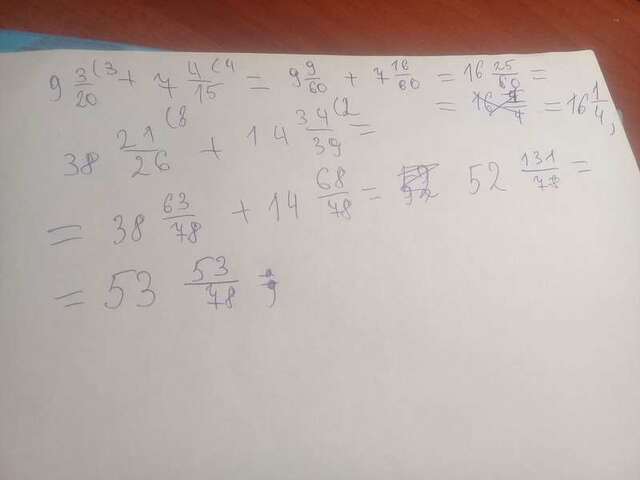 9 3/20 (3 + 7 4/15 (4 = 9 9/60 + 7 16/60 = 16 25/60 =
= 16 1/4,
38 21/26 (3 + 14 34/39 (2 =
= 38 63/78 + 14 68/78 = 52 131/78 =
= 53 53/78 ;